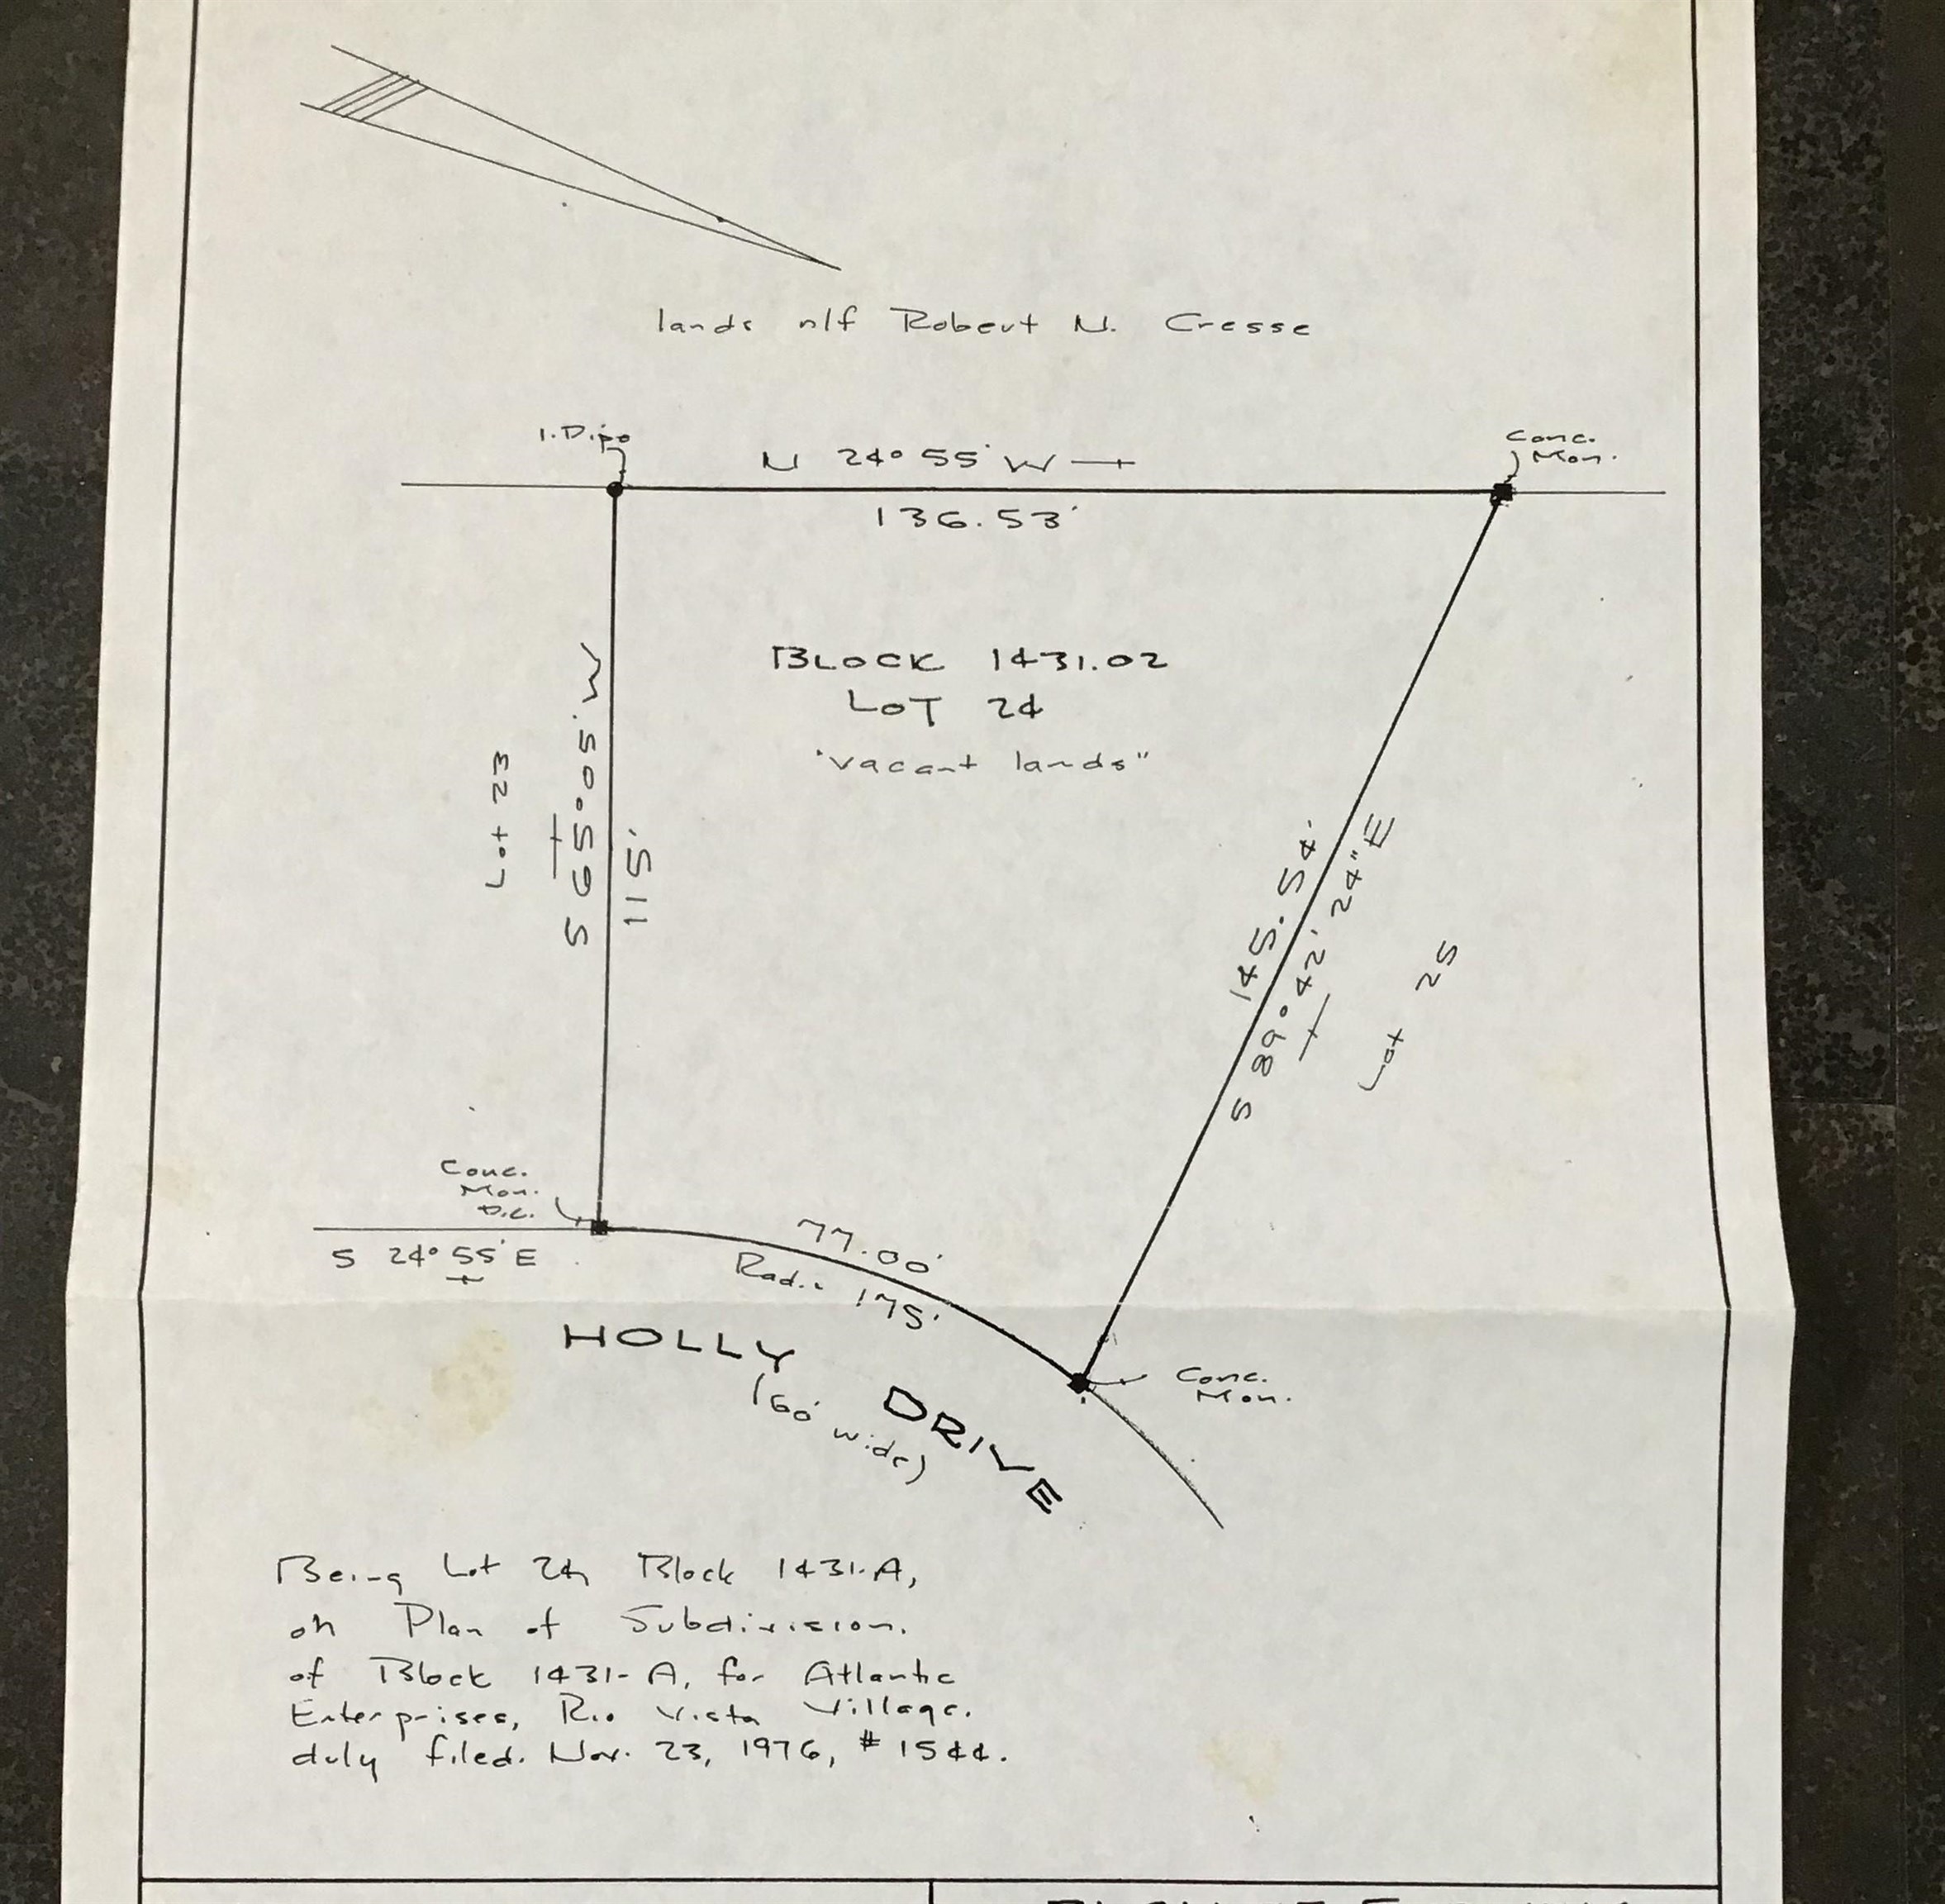 lands n/f Robert N. Cresse
I. Pipe
N 24° 55' W
Conc.
Mon.
136.53'
BLOCK 1431.02
LOT 24
"vacant lands"
Lot 23
S 65° 05' W
115'
145.54'
S 89° 42' 24" E
Lot 25
Conc.
Mon.
P.C.
S 24° 55' E
77.00'
Rad. 175'
HOLLY DRIVE
(60' wide)
Conc.
Mon.
Being Lot 24, Block 1431-A,
on Plan of Subdivision.
of Block 1431-A, for Atlantic
Enterprises, Rio Vista Village.
duly filed. Nov. 23, 1976, # 1544.